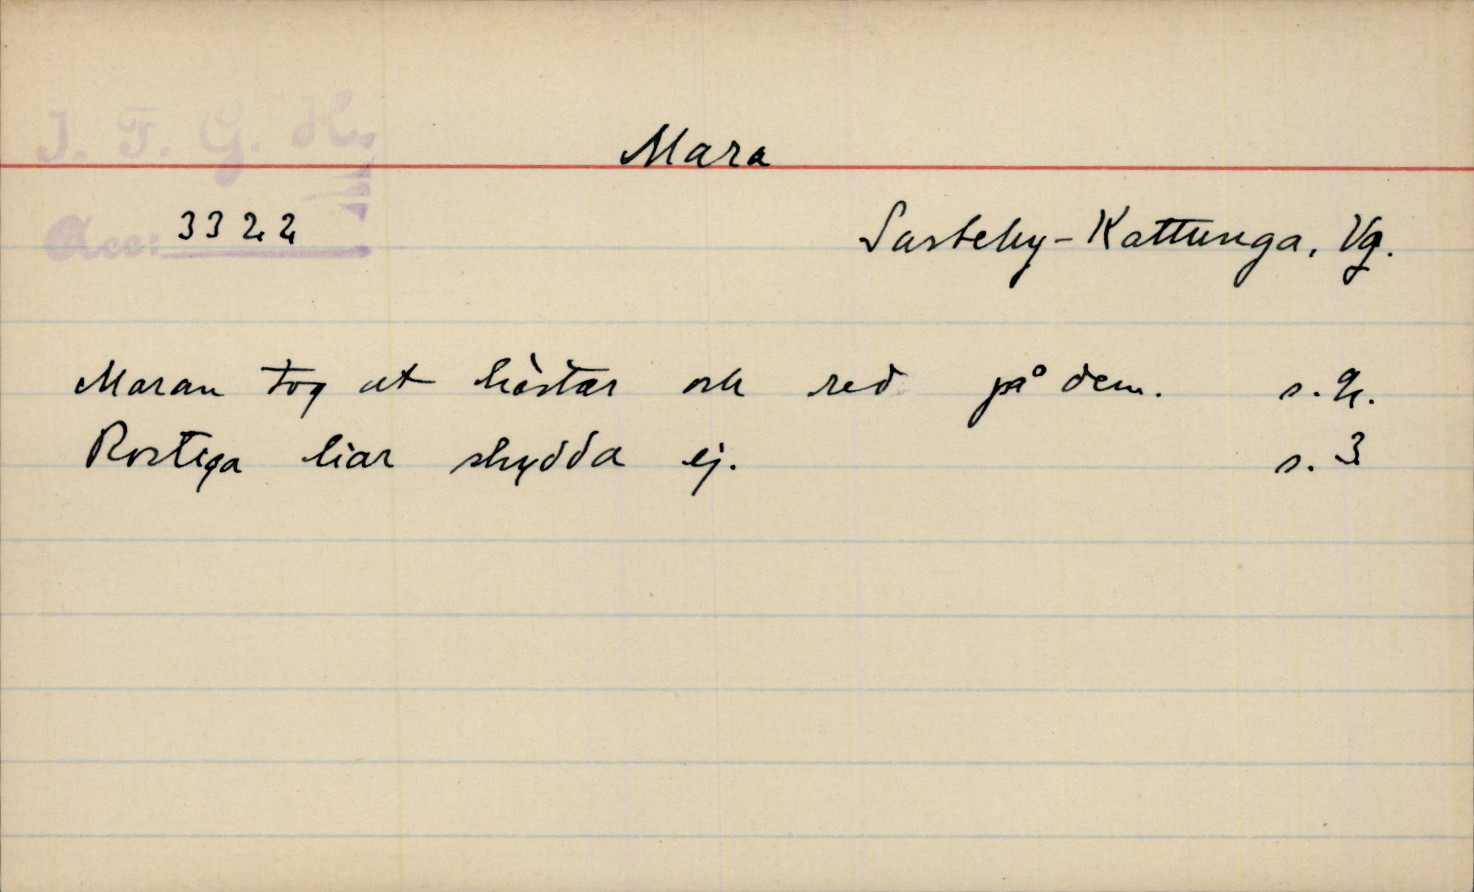 I. F. G. H.
Mara
Acc: 3322
Larbeby-Kattunga, Vg.
Maran tog ut hästar och red på dem. s. 2.
Rostiga liar skydda ej. s. 3